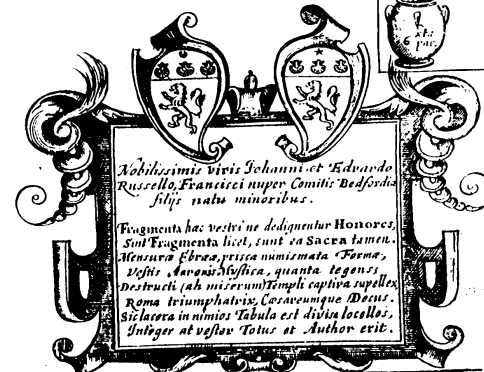 6 xta
par.
Nobilissimis viris Johanni et Edvardo
Russello, Francisci nuper Comitis Bedfordiæ
filijs natu minoribus.
Fragmenta hæc vestri ne dedignentur Honores,
Sint Fragmenta licet, sunt ea Sacra tamen.
Mensuræ Ebrææ, prisca numismata Formæ,
Vestis Aaronis Mystica, quanta tegens;
Destructi (ah miserum) Templi captiva supellex
Roma triumphatrix, Cæsareumque Decus.
Sic lacera in nimios Tabula est divisa locellos,
Integer at vester Totus et Author erit.